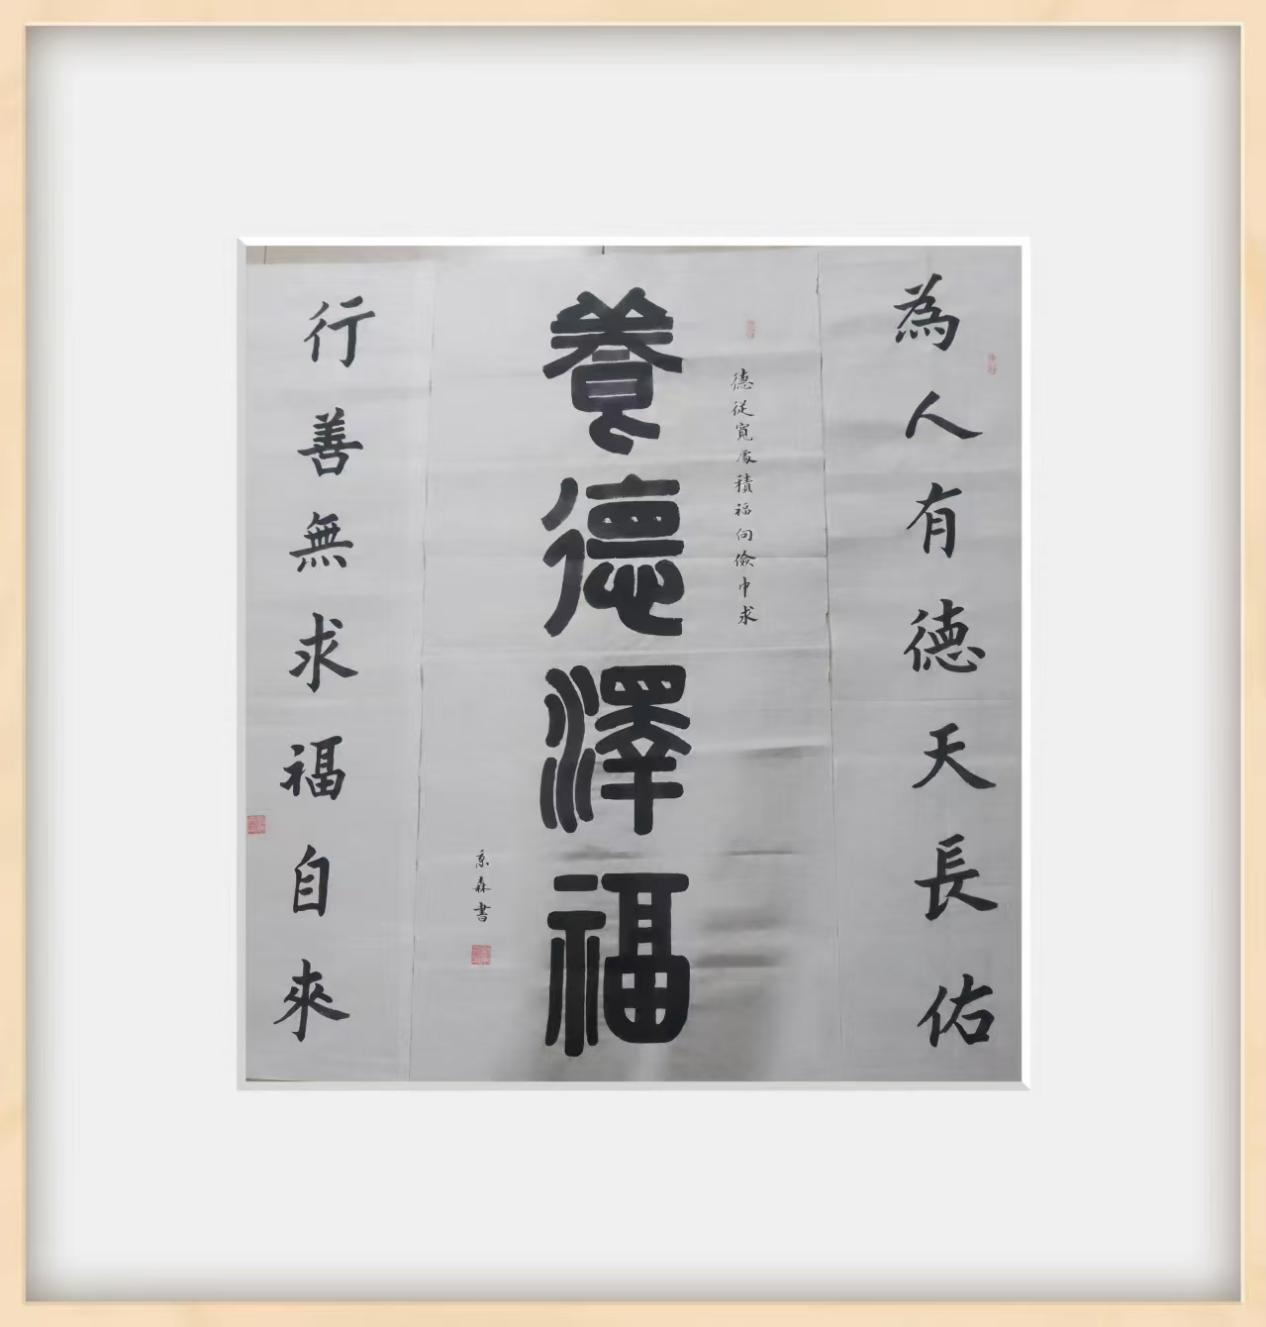 為人有德天長佑
德從寬處積福向儉中求
養德澤福
森書
行善無求福自來